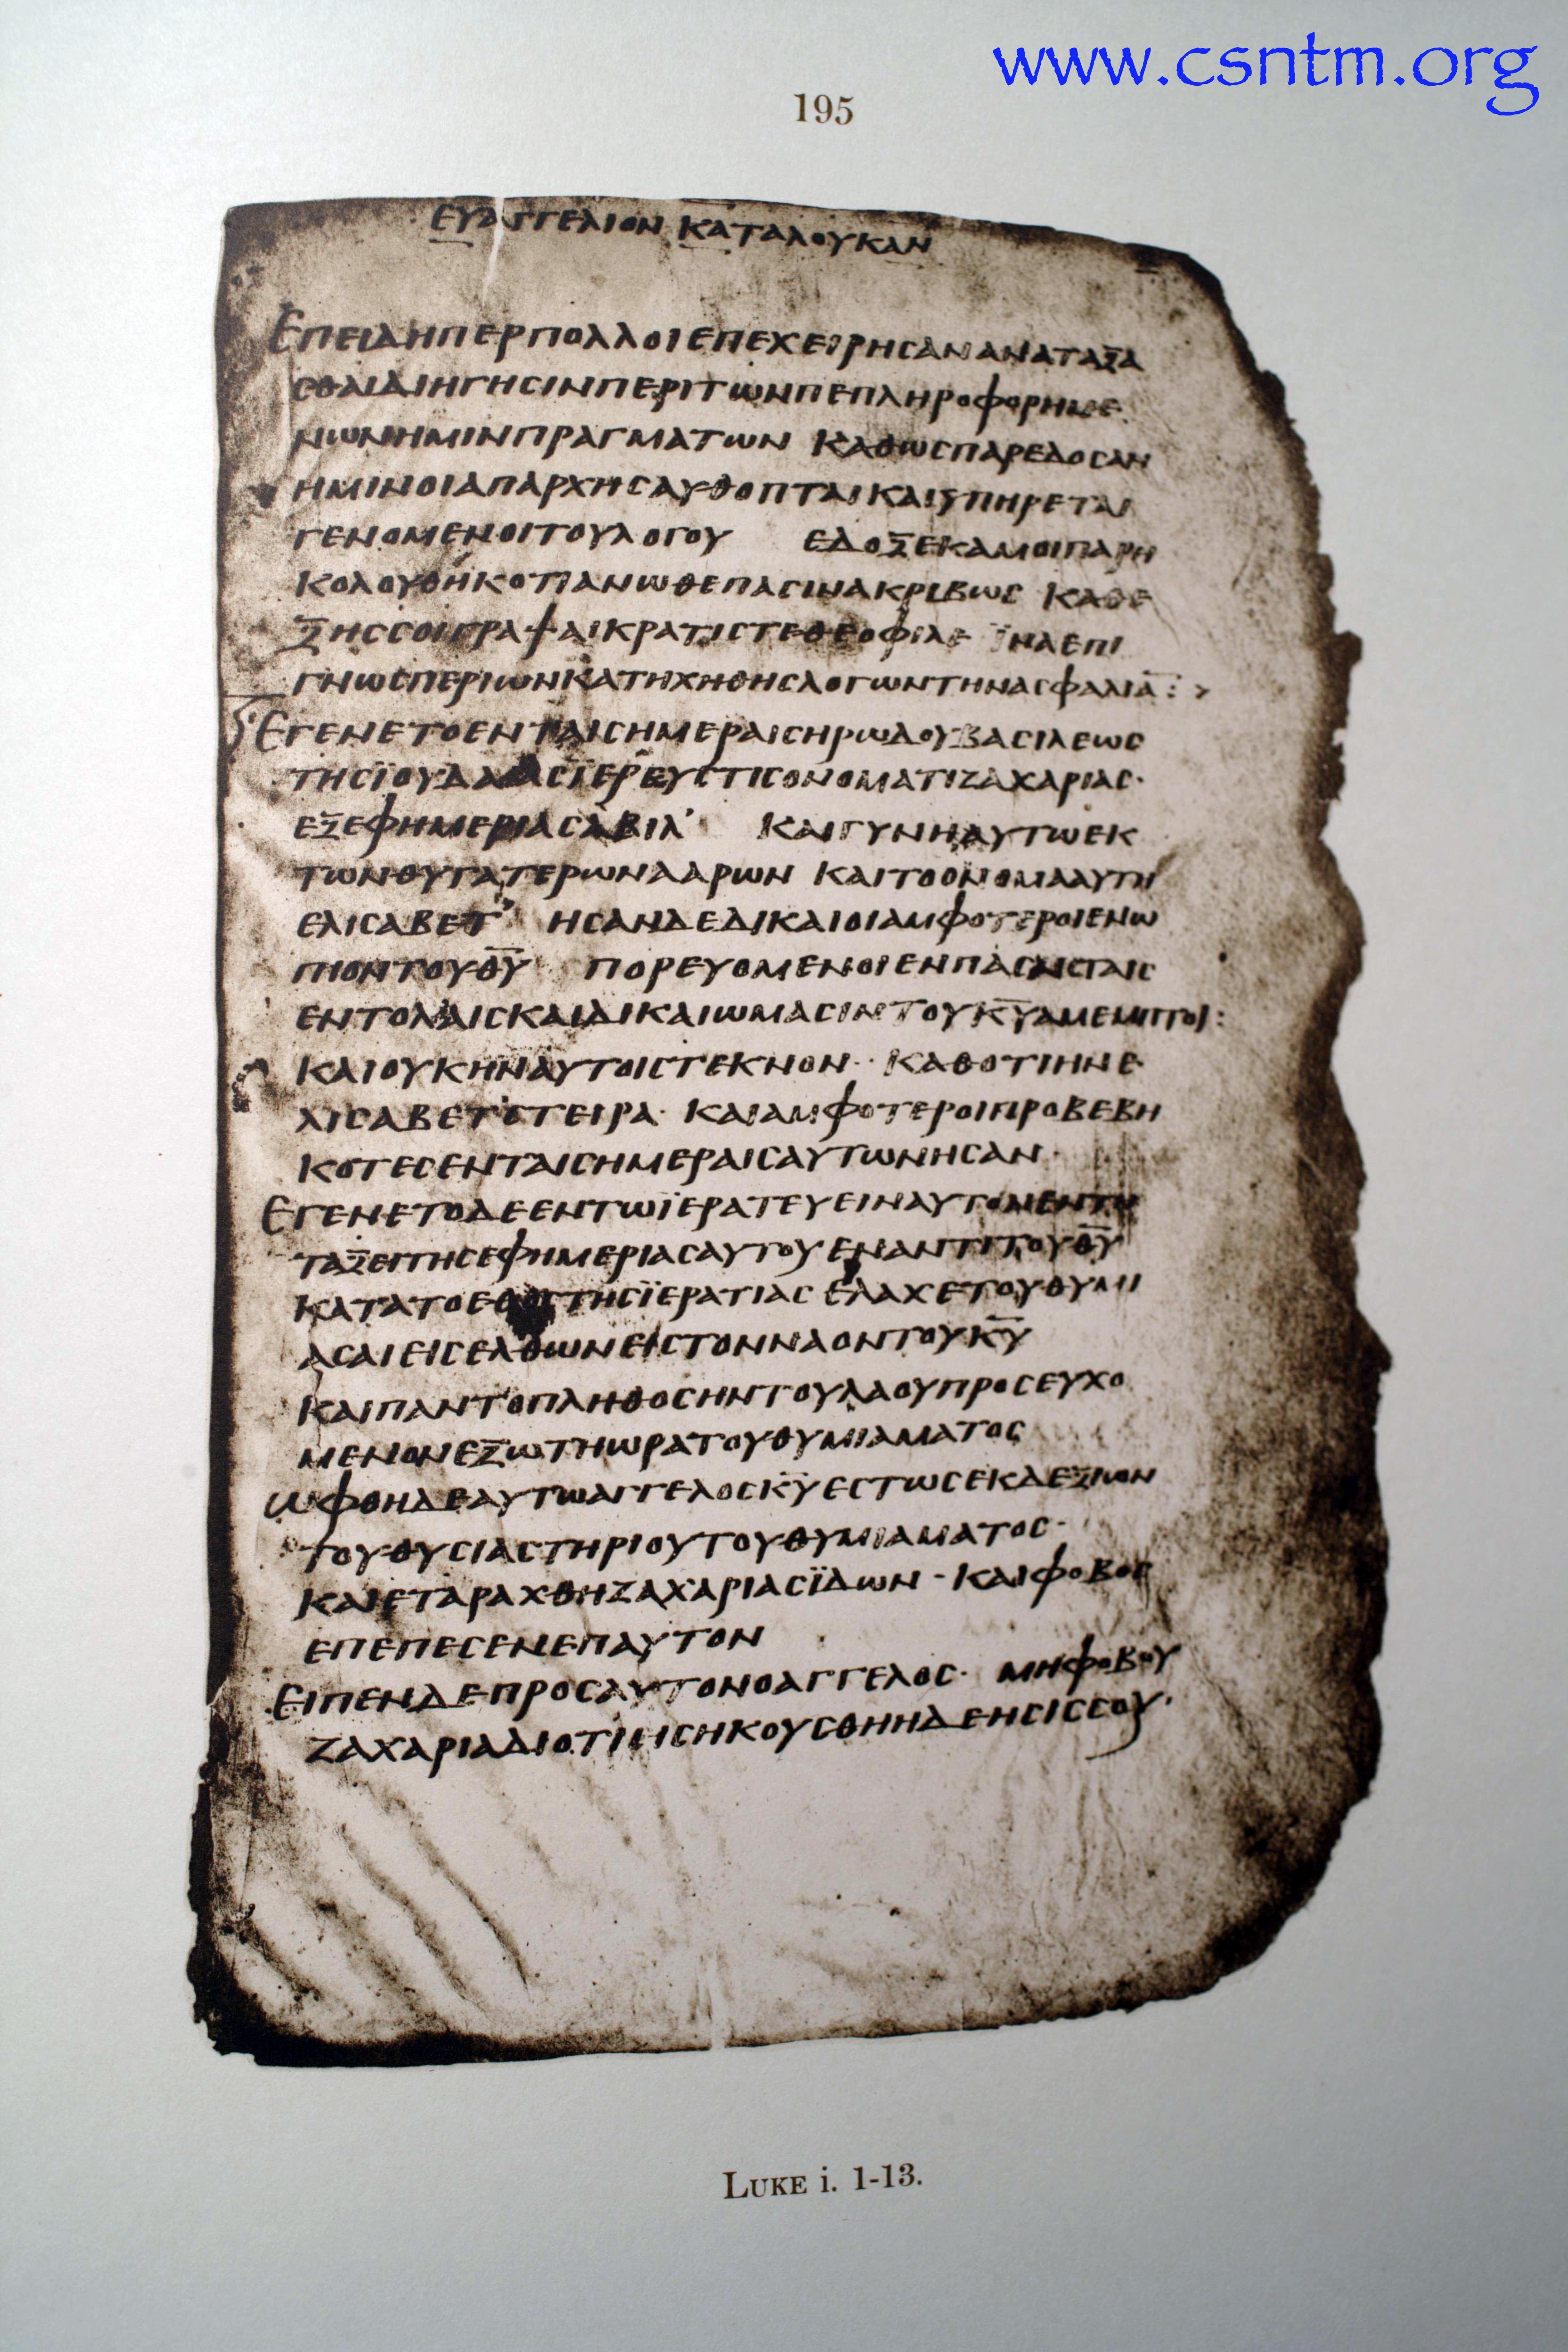 www.csntm.org
195
ΕΥΑΓΓΕΛΙΟΝ ΚΑΤΑ ΛΟΥΚΑΝ
ΕΠΕΙΔΗΠΕΡΠΟΛΛΟΙΕΠΕΧΕΙΡΗСΑΝΑΝΑΤΑΞΑ
СΘΑΙΔΙΗΓΗСΙΝΠΕΡΙΤωΝΠΕΠΛΗΡΟΦΟΡΗΜΕ
ΝωΝΗΜΙΝΠΡΑΓΜΑΤωΝ ΚΑΘωСΠΑΡΕΔΟСΑΝ
ΗΜΙΝΟΙΑΠΑΡΧΗСΑΥΘΟΠΤΑΙΚΑΙΥΠΗΡΕΤΑΙ
ΓΕΝΟΜΕΝΟΙΤΟΥΛΟΓΟΥ ΕΔΟΞΕΚΑΜΟΙΠΑΡΗ
ΚΟΛΟΥΘΗΚΟΤΙΑΝωΘΕΠΑСΙΝΑΚΡΙΒωС ΚΑΘΕ
ΞΗССΟΙΓΡΑΨΑΙΚΡΑΤΙСΤΕΘΕΟΦΙΛΕ ΪΝΑΕΠΙ
ΓΝωСΠΕΡΙωΝΚΑΤΗΧΗΘΗСΛΟΓωΝΤΗΝΑСΦΑΛΙΑ̅:>
ΕΓΕΝΕΤΟΕΝΤΑΙСΗΜΕΡΑΙСΗΡωΔΟΥΒΑСΙΛΕωС
ΤΗСΪΟΥΔΑΙΑСΪΕΡΕΥСΤΙСΟΝΟΜΑΤΙΖΑΧΑΡΙΑС·
ΕΞΕΦΗΜΕΡΙΑСΑΒΙΑ’ ΚΑΙΓΥΝΗΑΥΤωΕΚ
ΤωΝΘΥΓΑΤΕΡωΝΑΑΡωΝ ΚΑΙΤΟΟΝΟΜΑΑΥΤΗ
ΕΛΙСΑΒΕΤ’ ΗСΑΝΔΕΔΙΚΑΙΟΙΑΜΦΟΤΕΡΟΙΕΝω
ΠΙΟΝΤΟΥΘ̅Υ̅ ΠΟΡΕΥΟΜΕΝΟΙΕΝΠΑСΑΙСΤΑΙС
ΕΝΤΟΛΑΙСΚΑΙΔΙΚΑΙωΜΑСΙΝΤΟΥΚ̅Υ̅ΑΜΕΜΠΤΟΙ:
ΚΑΙΟΥΚΗΝΑΥΤΟΙСΤΕΚΝΟΝ· ΚΑΘΟΤΙΗΝΕ
ΛΙСΑΒΕΤ’СΤΕΙΡΑ· ΚΑΙΑΜΦΟΤΕΡΟΙΠΡΟΒΕΒΗ
ΚΟΤΕСΕΝΤΑΙСΗΜΕΡΑΙСΑΥΤωΝΗСΑΝ·
ΕΓΕΝΕΤΟΔΕΕΝΤωΪΕΡΑΤΕΥΕΙΝΑΥΤΟΝΕΝΤΗ
ΤΑΞΕΙΤΗСΕΦΗΜΕΡΙΑСΑΥΤΟΥΕΝΑΝΤΙΤΟΥΘ̅Υ̅
ΚΑΤΑΤΟΕΘΟСΤΗСΪΕΡΑΤΙΑС ΕΛΑΧΕΤΟΥΘΥΜΙ
ΑСΑΙΕΙСΕΛΘωΝΕΙСΤΟΝΝΑΟΝΤΟΥΚ̅Υ̅
ΚΑΙΠΑΝΤΟΠΛΗΘΟСΗΝΤΟΥΛΑΟΥΠΡΟСΕΥΧΟ
ΜΕΝΟΝΕΞωΤΗωΡΑΤΟΥΘΥΜΙΑΜΑΤΟС
ωΦΘΗΔΕΑΥΤωΑΓΓΕΛΟСΚ̅Υ̅ΕСΤωСΕΚΔΕΞΙωΝ
ΤΟΥΘΥСΙΑСΤΗΡΙΟΥΤΟΥΘΥΜΙΑΜΑΤΟС·
ΚΑΙΕΤΑΡΑΧΘΗΖΑΧΑΡΙΑСΪΔωΝ· ΚΑΙΦΟΒΟС
ΕΠΕΠΕСΕΝΕΠΑΥΤΟΝ
ΕΙΠΕΝΔΕΠΡΟСΑΥΤΟΝΟΑΓΓΕΛΟС· ΜΗΦΟΒΟΥ
ΖΑΧΑΡΙΑΔΙΟΤΙΕΙСΗΚΟΥСΘΗΗΔΕΗСΙССΟΥ·
LUKE i. 1-13.